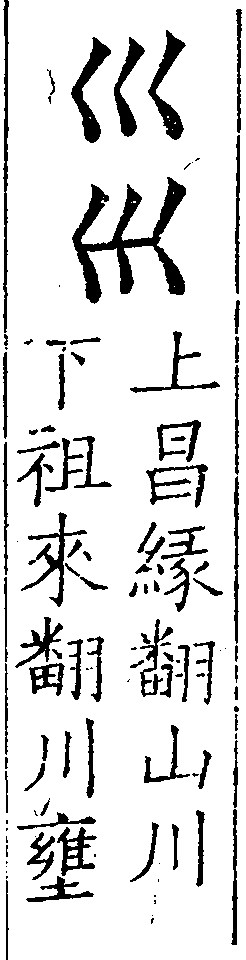 巛𡿧
上昌緣翻山川
下祖來翻川壅